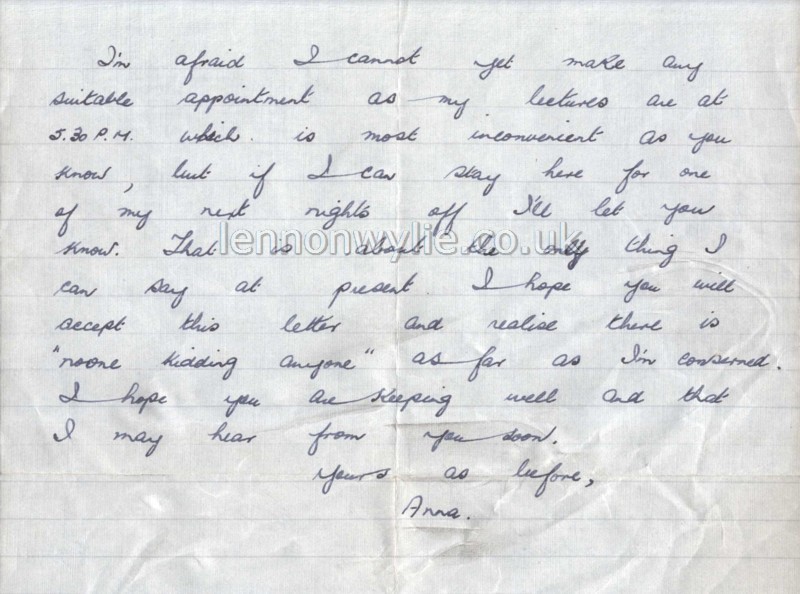 I'm afraid I cannot yet make any
suitable appointment as my lectures are at
5.30 P.M. which is most inconvenient as you
know, but if I can stay here for one
of my next nights off I'll let you
know. That is about the only thing I
lennonwylie.co.uk
can say at present. I hope you will
accept this letter and realise there is
"noone kidding anyone" as far as I'm conserned.
I hope you are keeping well and that
I may hear from you soon.
Yours as before,
Anna.